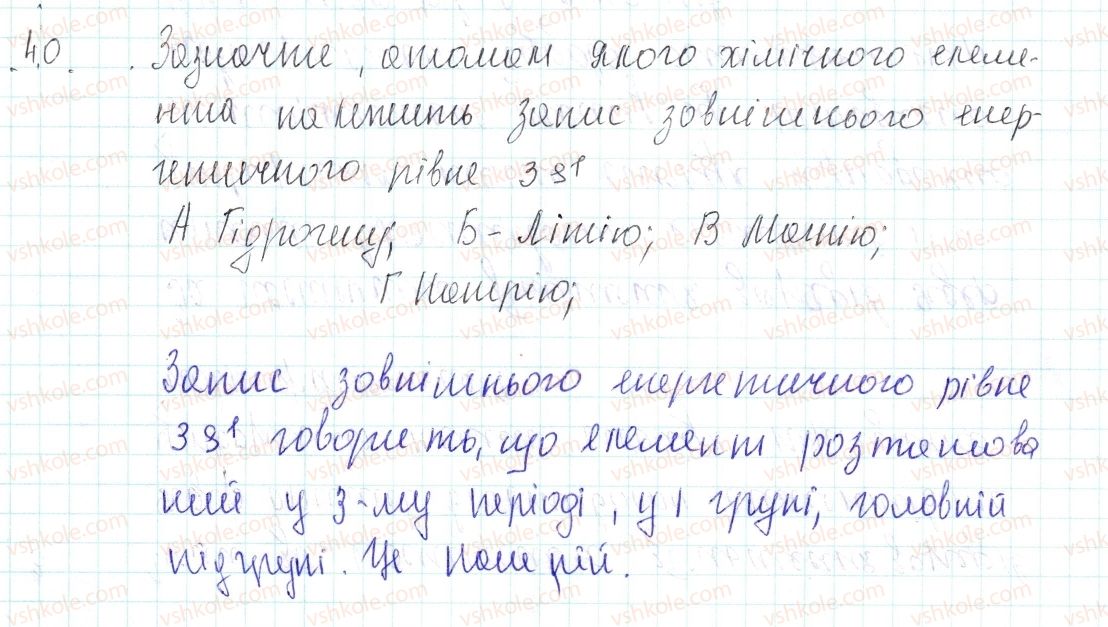 40. Зазначте, атомам якого хімічного елеме-
нта належить запис зовнішнього енер-
гетичного рівня 3s¹
А Гідрогену, Б - Літію; В Магнію;
Г Натрію;
Запис зовнішнього енергетичного рівня
3s¹ говорить, що елемент розташова
ний у 3-му періоді, у 1 групі, головній
підгрупі. Це натрій.